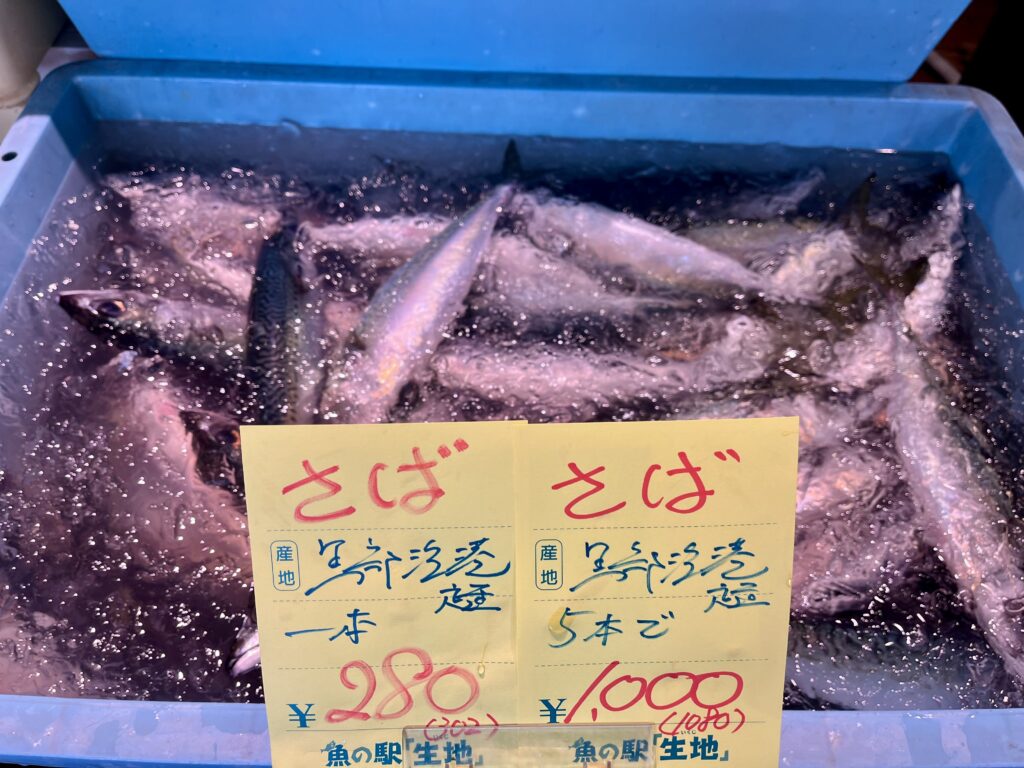 さば
産地 黒部漁港
定置
一本
¥280
(302)
魚の駅「生地」
さば
産地 黒部漁港
定置
5本で
¥1,000
(1080)
いくじ
魚の駅「生地」